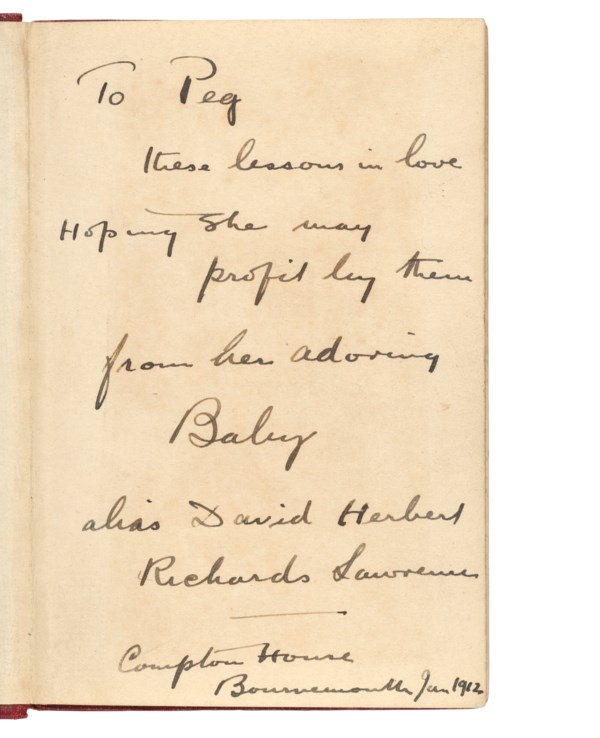 To Peg
these lessons in love
Hoping she may
profit by them
from her adoring
Baby
alias David Herbert
Richards Lawrence
Compton House
Bournemouth Jan 1912